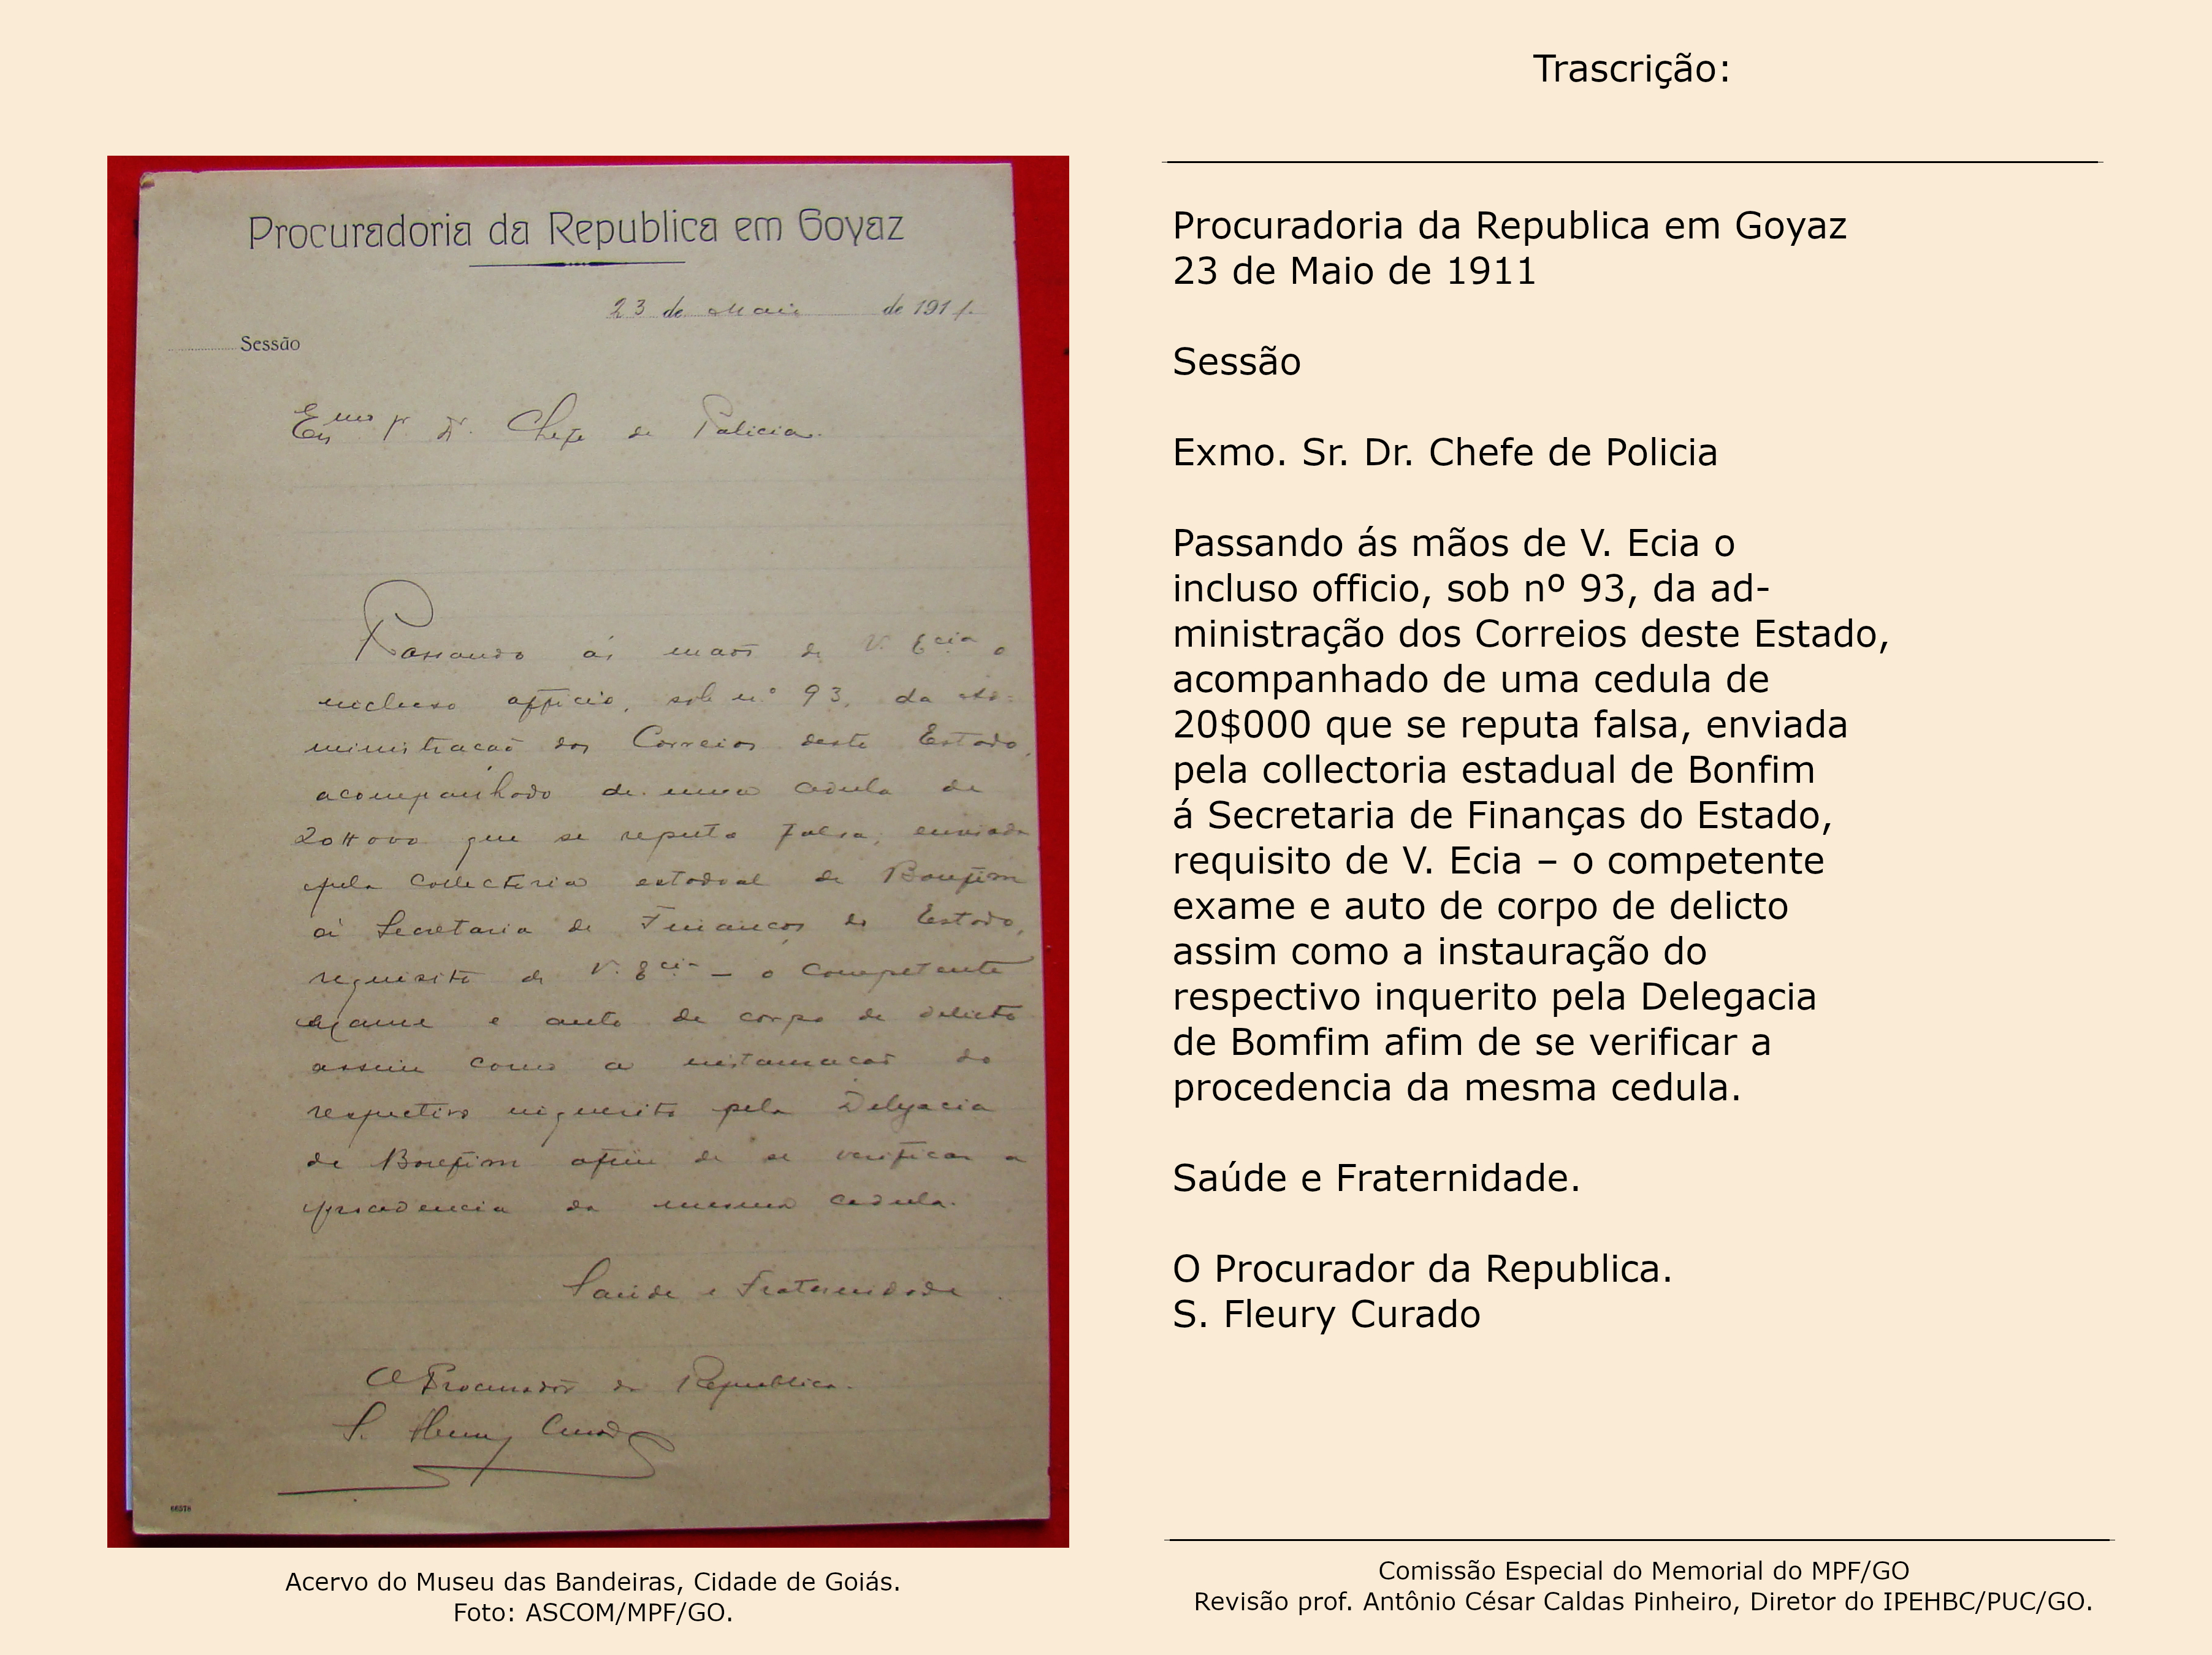 Trascrição:
Procuradoria da Republica em Goyaz
23 de Maio de 1911.
Sessão
Exmo Sr Dr. Chefe de Policia.
Passando ás mãos de V. Ecia o
incluso officio, sob n.º 93, da ad=
ministração dos Correios deste Estado,
acompanhado de uma cedula de
20$000 que se reputa falsa, enviada
pela collectoria estadoal de Bomfim
á Secretaria de Finanças do Estado,
requisito de V. Ecia – o competente
exame e auto de corpo de delicto
assim como a instauração do
respectivo inquerito pela Delegacia
de Bomfim afim de se verificar a
procedencia da mesma cedula.
Saúde e Fraternidade.
O Procurador da Republica.
S. Fleury Curado
66578
Acervo do Museu das Bandeiras, Cidade de Goiás.
Foto: ASCOM/MPF/GO.
Procuradoria da Republica em Goyaz
23 de Maio de 1911
Sessão
Exmo. Sr. Dr. Chefe de Policia
Passando ás mãos de V. Ecia o
incluso officio, sob nº 93, da ad-
ministração dos Correios deste Estado,
acompanhado de uma cedula de
20$000 que se reputa falsa, enviada
pela collectoria estadual de Bonfim
á Secretaria de Finanças do Estado,
requisito de V. Ecia – o competente
exame e auto de corpo de delicto
assim como a instauração do
respectivo inquerito pela Delegacia
de Bomfim afim de se verificar a
procedencia da mesma cedula.
Saúde e Fraternidade.
O Procurador da Republica.
S. Fleury Curado
Comissão Especial do Memorial do MPF/GO
Revisão prof. Antônio César Caldas Pinheiro, Diretor do IPEHBC/PUC/GO.